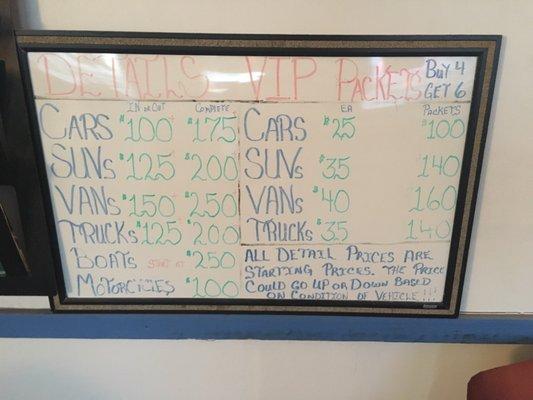 DETAILS VIP PACKETS BUY 4 GET 6
IN OR OUT COMPLETE
CARS $100 $175
SUVs $125 $200
VANs $150 $250
TRUCKs $125 $200
BOATs START AT $250
MOTORCYCLES $100
EA PACKETS
CARS $25 $100
SUVs $35 140
VANS $40 160
TRUCKs $35 140
ALL DETAIL PRICES ARE
STARTING PRICES. THE PRICE
COULD GO UP OR DOWN BASED
ON CONDITION OF VEHICLE!!!